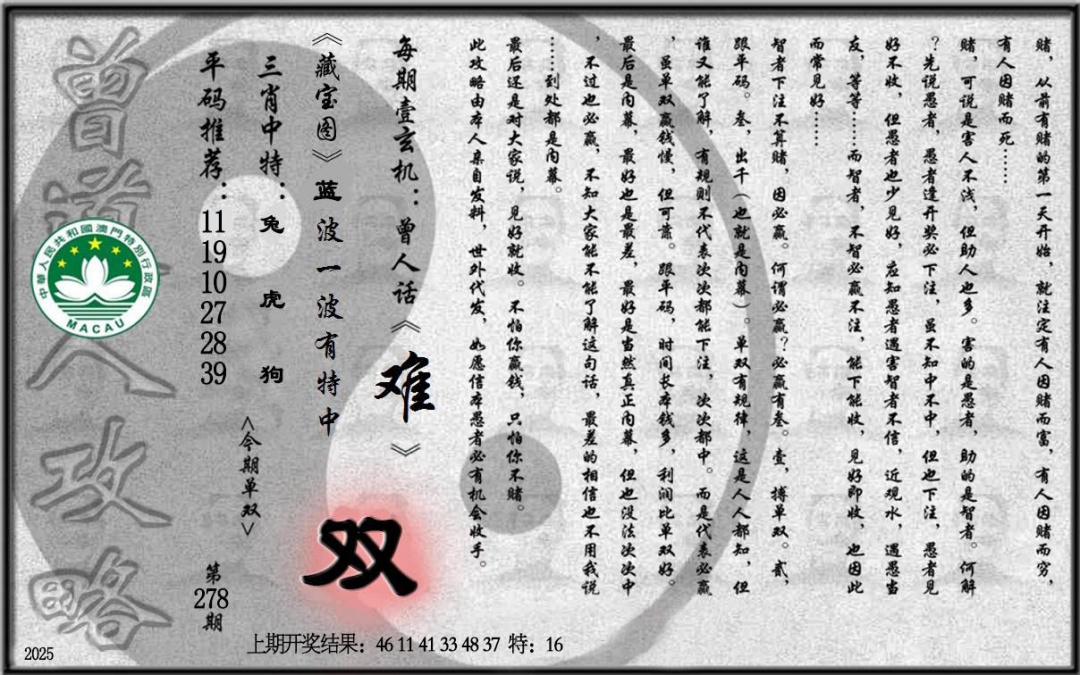 赌，从前有赌的第一天开始，就注定有人因赌而富，有人因赌而穷，
有人因赌而死……
赌，可说是害人不浅，但助人也多。害的是愚者，助的是智者。何解
？先说愚者，愚者逢开奖必下注，虽不知中不中，但也下注，愚者见
好不收，但愚者也少见好，应知愚者遇害智者不信，近观水，遇愚当
友，等等……而智者，不智必赢不注，能下能收，见好即收，也因此
而常见好……
智者下注不算赌，因必赢。何谓必赢？必赢有叁。壹，搏单双。贰，
跟平码。叁，出千（也就是内幕）。单双有规律，这是人人都知，但
谁又能了解，有规则不代表次次都能下注，次次都中。而是代表必赢
，虽单双赢钱慢，但可靠。跟平码，时间长本钱多，利润比单双好。
最后是内幕，最好也是最差，最好是当然真正内幕，但也没法次次中
，不过也必赢，不知大家能不能了解这句话，最差的相信也不用我说
……到处都是内幕。
最后还是对大家说，见好就收。不怕你赢钱，只怕你不赌。
此攻略由本人亲自发料，世外代发，如愿信本愚者必有机会收手。
每期壹玄机：曾人话《难》
《藏宝图》蓝波一波有特中
双
三肖中特：兔 虎 狗
<今期单双>
平码推荐：11 19 10 27 28 39
第278期
曾道人攻略
中華人民共和國澳門特別行政區
MACAU
上期开奖结果：46 11 41 33 48 37 特：16
2025